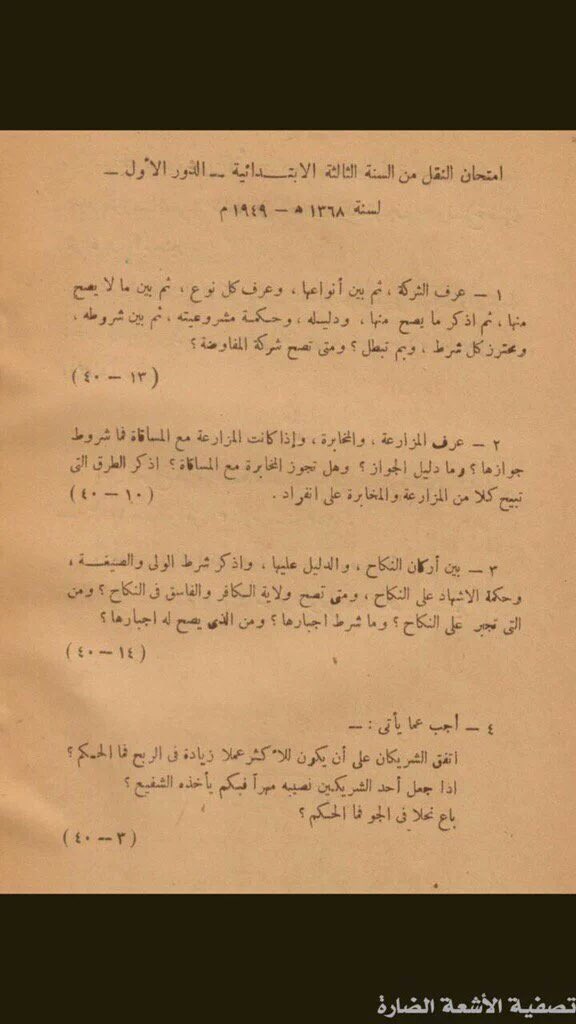 امتحان النقل من السنة الثالثة الابتدائية — الدور الأول —
لسنة ١٣٦٨ ه — ١٩٤٩ م
١ — عرف الشركة ، ثم بين أنواعها ، وعرف كل نوع ، ثم بين ما لا يصح
منها ، ثم اذكر ما يصح منها ، ودليله ، وحكمة مشروعيته ، ثم بين شروطه ،
ومحترز كل شرط ، وبم تبطل ؟ ومتى تصح شركة المفاوضة ؟
( ١٣ — ٤٠ )
٢ — عرف المزارعة ، والمخابرة ، وإذا كانت المزارعة مع المساقاة فما شروط
جوازها ؟ وما دليل الجواز ؟ وهل تجوز المخابرة مع المساقاة ؟ اذكر الطرق التى
تبيح كلا من المزارعة والمخابرة على انفراد . ( ١٠ — ٤٠ )
٣ — بين أركان النكاح ، والدليل عليها ، واذكر شرط الولى والصيغة ،
وحكمة الاشهاد على النكاح ، ومتى تصح ولاية الكافر والفاسق فى النكاح ؟ ومن
التى تجبر على النكاح ؟ وما شرط اجبارها ؟ ومن الذى يصح له اجبارها ؟
( ١٤ — ٤٠ )
٤ — أجب عما يأتى : —
اتفق الشريكان على أن يكون للأكثر عملا زيادة فى الربح فما الحكم ؟
اذا جعل أحد الشريكين نصيبه مهرأ فبكم يأخذه الشفيع ؟
باع نحلا فى الجو فما الحكم ؟
( ٣ — ٤٠ )
تصفية الأشعة الضارة